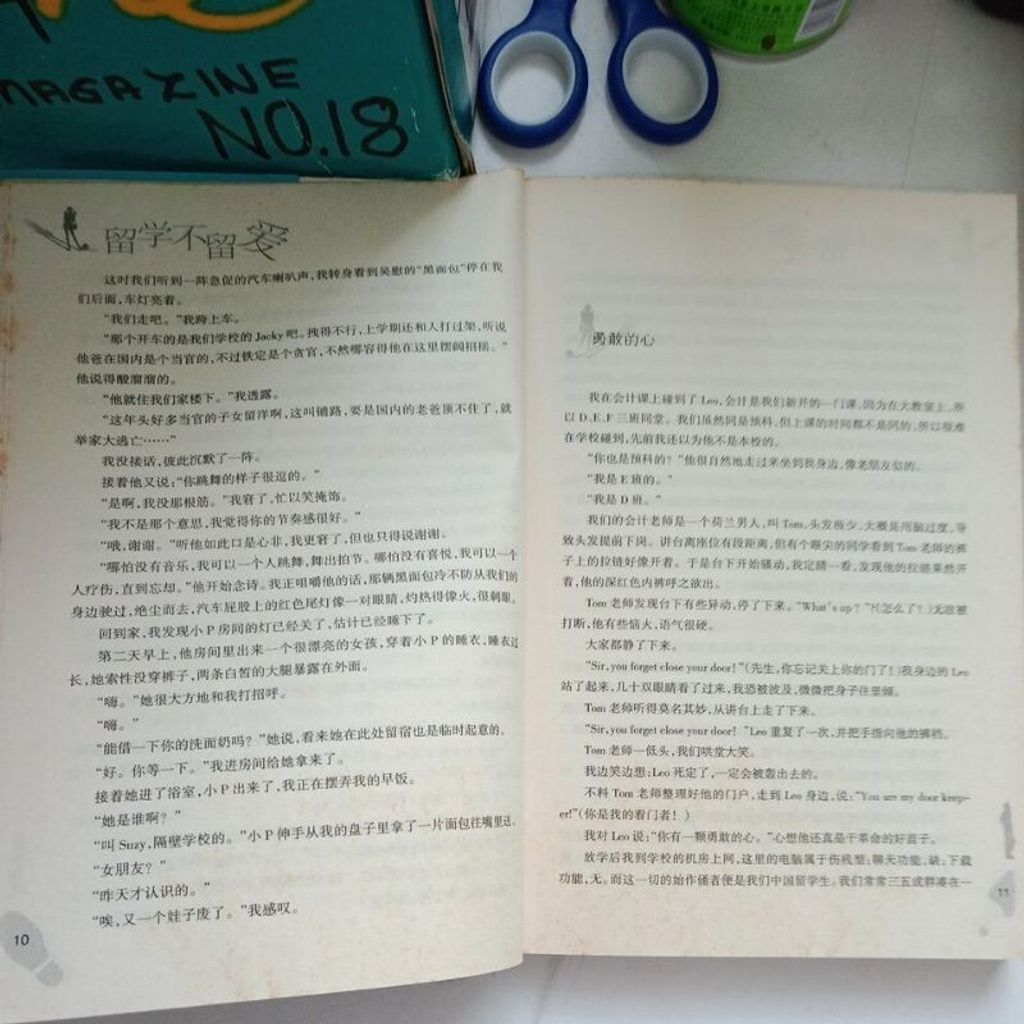 MAGAZINE
NO.18
留学不留爱
这时我们听到一阵急促的汽车喇叭声,我转身看到吴慰的“黑面包”停在我
们后面,车灯亮着。
“我们走吧。”我跨上车。
“那个开车的是我们学校的 Jacky 吧。拽得不行,上学期还和人打过架,听说
他爸在国内是个当官的,不过铁定是个贪官,不然哪容得他在这里摆阔招摇。”
他说得酸溜溜的。
“他就住我们家楼下。”我透露。
“这年头好多当官的子女留洋啊,这叫铺路,要是国内的老爸顶不住了,就
举家大逃亡……”
我没接话,彼此沉默了一阵。
接着他又说:“你跳舞的样子很逗的。”
“是啊,我没那根筋。”我窘了,忙以笑掩饰。
“我不是那个意思,我觉得你的节奏感很好。”
“哦,谢谢。”听他如此口是心非,我更窘了,但也只得说谢谢。
“哪怕没有音乐,我可以一个人跳舞,舞出拍节。哪怕没有喜悦,我可以一个
人疗伤,直到忘却。”他开始念诗。我正咀嚼他的话,那辆黑面包冷不防从我们的
身边驶过,绝尘而去,汽车屁股上的红色尾灯像一对眼睛,灼热得像火,很刺眼。
回到家,我发现小 P 房间的灯已经关了,估计已经睡下了。
第二天早上,他房间里出来一个很漂亮的女孩,穿着小 P 的睡衣,睡衣过
长,她索性没穿裤子,两条白皙的大腿暴露在外面。
“嗨。”她很大方地和我打招呼。
“嗨。”
“能借一下你的洗面奶吗?”她说,看来她在此处留宿也是临时起意的。
“好。你等一下。”我进房间给她拿来了。
接着她进了浴室,小 P 出来了,我正在摆弄我的早饭。
“她是谁啊?”
“叫 Suzy,隔壁学校的。”小 P 伸手从我的盘子里拿了一片面包往嘴里送。
“女朋友?”
“昨天才认识的。”
“唉,又一个娃子废了。”我感叹。
10
勇敢的心
我在会计课上碰到了 Leo,会计是我们新开的一门课,因为在大教室上,所
以 D、E、F 三班同堂。我们虽然同是预科,但上课的时间都不是同的,所以很难
在学校碰到,先前我还以为他不是本校的。
“你也是预科的?”他很自然地走过来坐到我身边,像老朋友似的。
“我是 E 班的。”
“我是 D 班。”
我们的会计老师是一个荷兰男人,叫 Tom,头发极少,大概是用脑过度,导
致头发提前下岗。讲台离座位有段距离,但有个眼尖的同学看到 Tom 老师的裤
子上的拉链好像开着。于是台下开始骚动,我定睛一看,发现他的拉链果然开
着,他的深红色内裤呼之欲出。
Tom 老师发现台下有些异动,停了下来。“What's up?”(怎么了?)无故被
打断,他有些恼火,语气很硬。
大家都静了下来。
“Sir, you forget close your door!”(先生,你忘记关上你的门了!)我身边的 Leo
站了起来,几十双眼睛看了过来,我恐被波及,微微把身子往里倾。
Tom 老师听得莫名其妙,从讲台上走了下来。
“Sir, you forget close your door!”Leo 重复了一次,并把手指向他的裤裆。
Tom 老师一低头,我们哄堂大笑。
我边笑边想:Leo 死定了,一定会被轰出去的。
不料 Tom 老师整理好他的门户,走到 Leo 身边,说:“You are my door keep-
er!”(你是我的看门者!)
我对 Leo 说:“你有一颗勇敢的心。”心想他还真是干革命的好苗子。
放学后我到学校的机房上网,这里的电脑属于伤残型:聊天功能,缺;下载
功能,无。而这一切的始作俑者便是我们中国留学生。我们常常三五成群凑在一
11